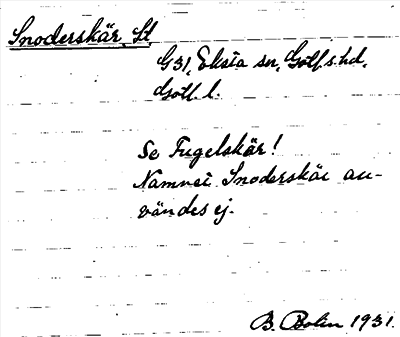 Snoderskär, St
G31, Eksta sn, Gotl.s.hd,
Gotl. l.
Se Fugelskär!
Namnet Snoderskär an-
vändes ej.
B. Bolin 1931.